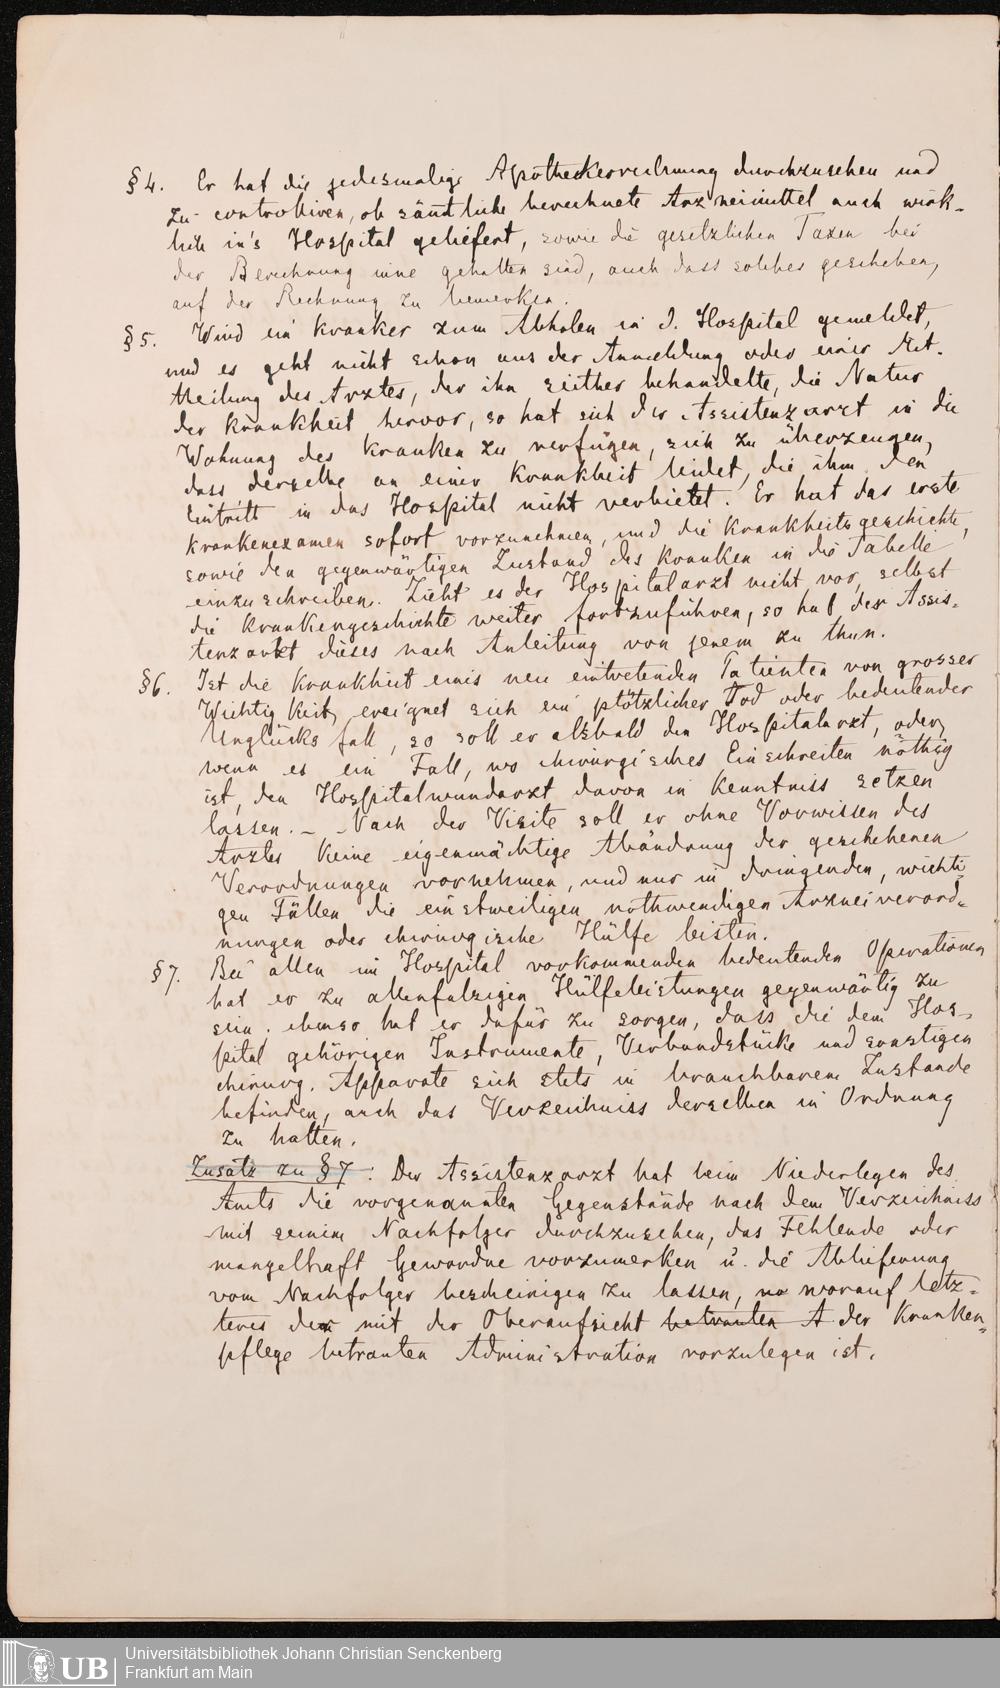 § 4. Er hat die jedesmalige Apothekerrechnung durchzusehen und
zu controlliren, ob sämtliche berechnete Arzneimittel auch wirk-
lich in's Hospital geliefert, sowie die gesetzlichen Taxen bei
der Berechnung inne gehalten sind, auch dass solches geschehen,
auf der Rechnung zu bemerken.
§ 5. Wird ein Kranker zum Abholen in d. Hospital gemeldet,
und es geht nicht schon aus der Anmeldung oder einer Mit-
theilung des Arztes, der ihn seither behandelte, die Natur
der Krankheit hervor, so hat sich der Assistenzarzt in die
Wohnung des Kranken zu verfügen, sich zu überzeugen,
dass derselbe an einer Krankheit leidet, die ihm den
Eintritt in das Hospital nicht verbietet. Er hat das erste
Krankenexamen sofort vorzunehmen, und die Krankheitsgeschichte,
sowie den gegenwärtigen Zustand des Kranken in die Tabelle
einzuschreiben. Zieht es der Hospitalarzt nicht vor, selbst
die Krankengeschichte weiter fortzuführen, so hat der Assis-
tenzarzt dieses nach Anleitung von jenem zu thun.
§ 6. Ist die Krankheit eines neu eintretenden Patienten von grosser
Wichtigkeit, ereignet sich ein plötzlicher Tod oder bedeutender
Unglücksfall, so soll er alsbald den Hospitalarzt, oder,
wenn es ein Fall, wo chirurgisches Einschreiten nöthig
ist, den Hospitalwundarzt davon in Kenntniss setzen
lassen. – Nach der Visite soll er ohne Vorwissen des
Arztes keine eigenmächtige Abändrung der geschehenen
Verordnungen vornehmen, und nur in dringenden, wichti-
gen Fällen die einstweiligen nothwendigen Arzneiverord-
nungen oder chirurgische Hülfe leisten.
§ 7. Bei allen im Hospital vorkommenden bedeutenden Operationen
hat er zu allenfalsigen Hülfeleistungen gegenwärtig zu
sein; ebenso hat er dafür zu sorgen, dass die dem Hos-
pital gehörigen Instrumente, Verbandstücke und sonstigen
chirurg. Apparate sich stets in brauchbarem Zustande
befinden, auch das Verzeichniss derselben in Ordnung
zu halten.
Zusatz zu § 7: Der Assistenzarzt hat beim Niederlegen des
Amts die vorgenannten Gegenstände nach dem Verzeichniss
mit seinem Nachfolger durchzusehen, das Fehlende oder
mangelhaft Gewordne vorzumerken u. die Ablieferung
vom Nachfolger bescheinigen zu lassen, wo worauf letz-
teres der mit der Oberaufsicht betrauten A der Kranken-
pflege betrauten Administration vorzulegen ist.
UB
Universitätsbibliothek Johann Christian Senckenberg
Frankfurt am Main